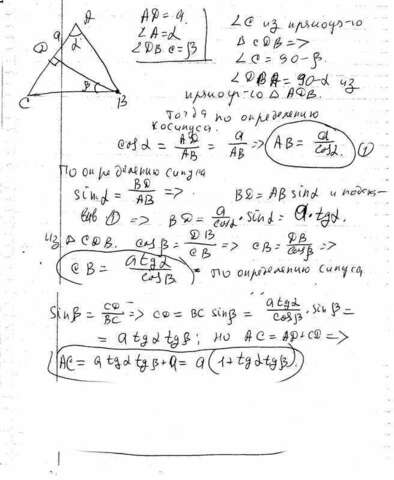 A
a α
D
C B
β
AD = a.
∠A = α
∠DBC = β
∠C из прямоуг-го
Δ CDB =>
∠C = 90 - β.
∠DBA = 90 - α из
прямоуг-го Δ ADB.
Тогда по определению
косинуса.
cos α = AD/AB = a/AB => AB = a/cos α. (1)
По определению синуса
sin α = BD/AB => BD = AB sin α и подста-
вив (1) => BD = a/cos α · sin α = a · tg α.
Из Δ CDB. cos β = DB/CB => CB = DB/cos β =>
CB = a tg α/cos β по определению синуса
sin β = CD/BC => CD = BC sin β = a tg α/cos β · sin β =
= a tg α tg β; но AC = AD + CD =>
AC = a tg α tg β + a = a (1 + tg α tg β).